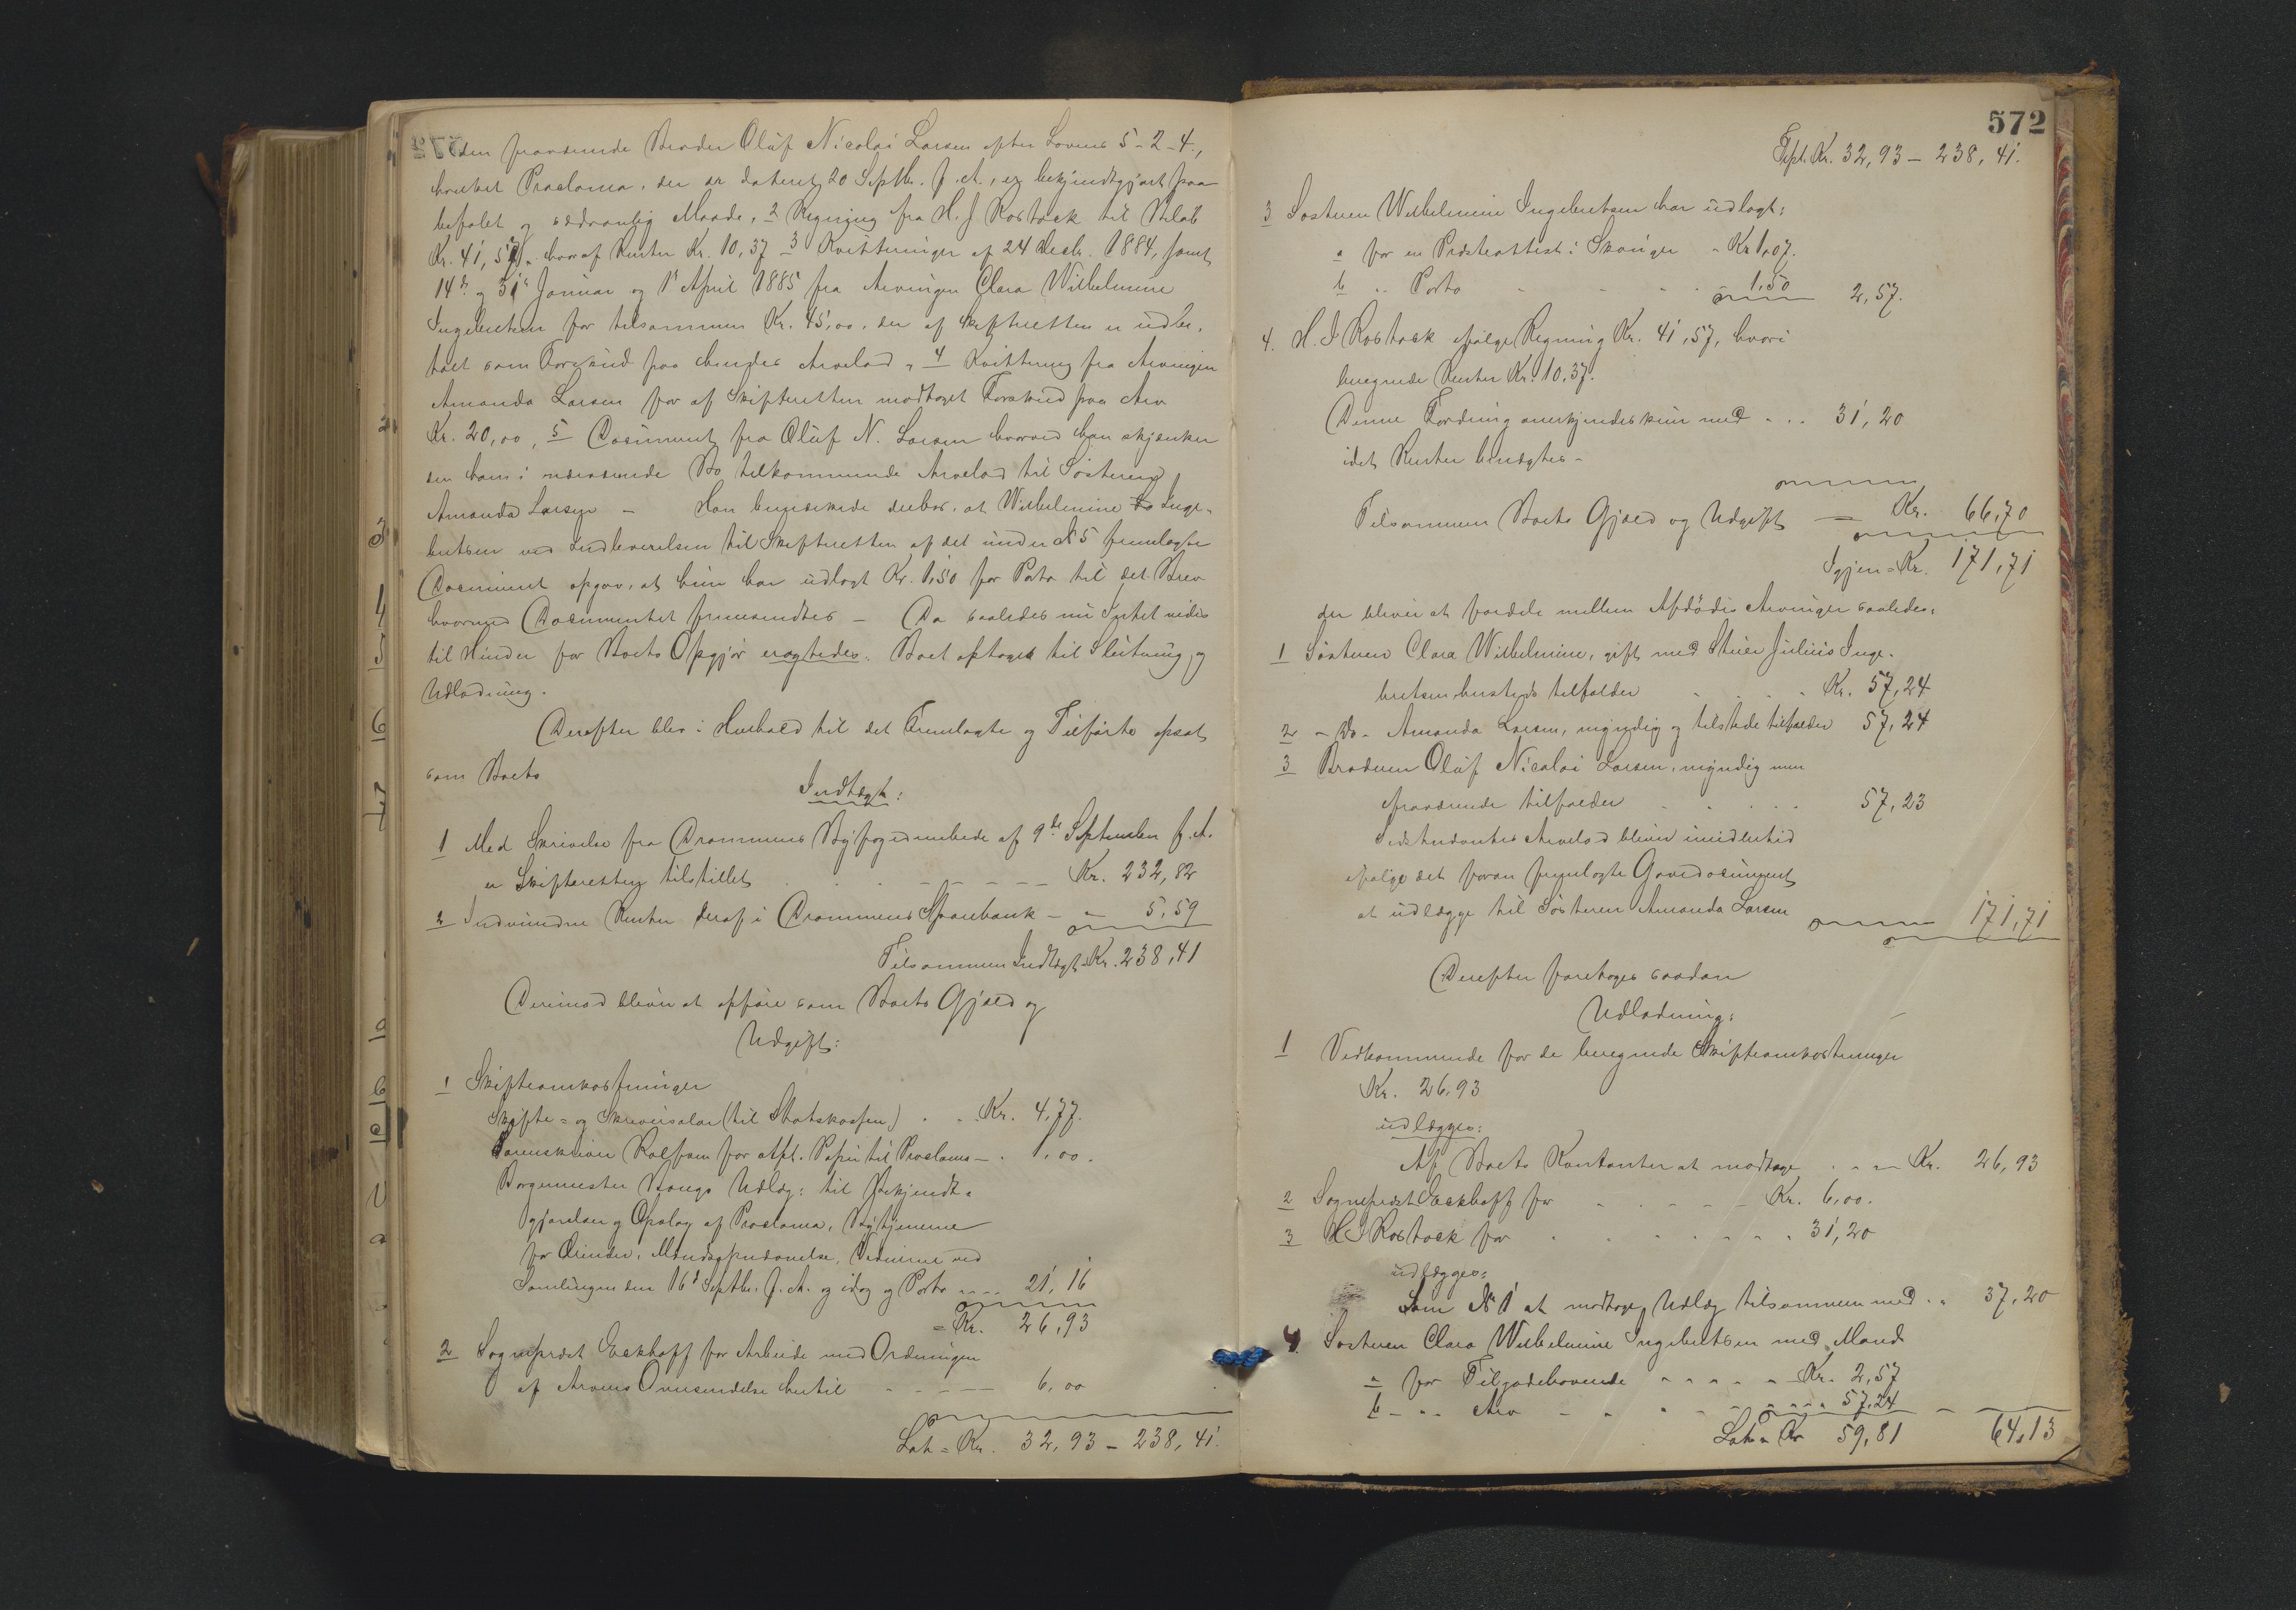 den fraværende Broder Oluf Nicolai Larsen efter Lovens 5-2-4,
hvilket Proclama, der er dateret 20 Septbr. f. A., er bekjendtgjort paa
befalet og sædvanlig Maade, 2 Regning fra H. J Rostock til Beløb
Kr. 41,57, hvoraf Renter Kr. 10,37 - 3 Kvitteringer af 24 Decbr. 1884, samt
14de og 31te Januar og 1ste April 1885 fra Arvingen Clara Wilhelmine
Ingebretsen for tilsammen Kr. 45,00, der af Skifteretten er udbe-
talt som Forskud paa hendes Arvelod, 4 Kvittering fra Arvingen
Amanda Larsen for af Skifteretten modtaget Forskud paa Arv
Kr. 20,00, 5 Document fra Oluf N. Larsen hvorved han skjænker
den ham i nærværende Bo tilkommende Arvelod til Søsteren
Amanda Larsen - Han bemærkede derhos, at Wilhelmine Inge-
bretsen ved Indleverelsen til Skifteretten af det under № 5 fremlagte
Document opgav, at hun har udlagt Kr. 1,50 for Porto til det Brev
hvormed Documentet fremsendtes - Da saaledes nu Intet vides
til Hinder for Boets Opgjør eragtedes: Boet optages til Slutning og
Udlodning.
Derefter blev i Henhold til det Fremlagte og Tilførte opsat
som Boets
Indtægt:
1 Med Skrivelse fra Drammens Byfogedembede af 9de September f. A.
er Skifteretten tilstillet - - - Kr. 232,82
2 Indvundne Renter deraf i Drammens Sparebank - - 5,59
Tilsammen Indtægt = Kr. 238,41
Derimod bliver at opføre som Boets Gjæld og
Udgift:
1 Skifteomkostninger
Skifte- og Skriversalær (til Statskassen) . . Kr. 4,77.
Sorenskriver Rolfsen for stpl. Papir til Proclama - . 1,00.
Borgermester Bangs Udlæg: til Bekjendt-
gjørelse og Opslag af Proclama, Bytjenerne
for Ærinder, Mandagprøvelse, Vidnerne ved
Samlingen den 16de Septbr. f. A. og idag og Porto - - 21,16
= Kr. 26,93
2 Sogneprest Eeckhoff for Arbeide med Ordningen
af Arvens Oversendelse hertil - - - 6,00
Lat. = Kr. 32,93 - 238,41.
572
Tspt. Kr. 32,93 - 238,41.
3 Søsteren Wilhelmine Ingebretsen har udlagt:
a for en Præsteattest i Skoger - Kr 1,07.
b " Porto - - - 1,50 2,57.
4. H. J Rostock ifølge Regning Kr. 41,57, hvori
beregnede Renter Kr. 10,37.
Denne Fordring anerkjendes kun med . . . 31,20
idet Renter benægtes -
Tilsammen Boets Gjæld og Udgift = Kr. 66,70
Igjen = Kr. 171,71
der bliver at fordele mellem Afdødes Arvinger saaledes:
1 Søsteren Clara Wilhelmine, gift med Stuer Julius Inge-
bretsen hersteds tilfalder . . . Kr. 57,24
2 - Do - Amanda Larsen, myndig og tilstede tilfalder 57,24
3 Broderen Oluf Nicolai Larsen, myndig men
fraværende tilfalder - - - 57,23
Sidstnævntes Arvelod bliver imidlertid
ifølge det foran fremlagte Gavedocument
at udlægge til Søsteren Amanda Larsen 171,71
Derefter foretoges saadan
Udlodning:
1 Vedkommende for de beregnede Skifteomkostninger
Kr. 26,93
udlægges:
Af Boets Kontanter at modtage . - - Kr. 26,93
2 Sogneprest Eeckhoff for - - - Kr. 6,00.
3 H J Rostock for - - - 31,20
udlægges:
Som № 1 at modtage Udlæg tilsammen med - " 37,20
4. Søsteren Clara Wilhelmine Ingebretsen med Mand
a for Tilgodehavende - - - Kr. 2,57
b - " Arv - - - 57,24
Lat. = Kr 59,81 64,13